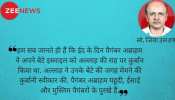 ZEE NEWS
प्रो. निरंजन कुमार
"हम सब जानते हैं कि ईद के दिन पैगंबर अब्राहम
ने अपने बेटे इस्माइल को अल्लाह की राह पर कुर्बान
किया था. अल्लाह ने उनके बेटे की जगह मेमने की
कुर्बानी स्वीकार की. पैगंबर अब्राहम यहूदी, ईसाई
और मुस्लिम पैगंबरों के पुरखे हैं."